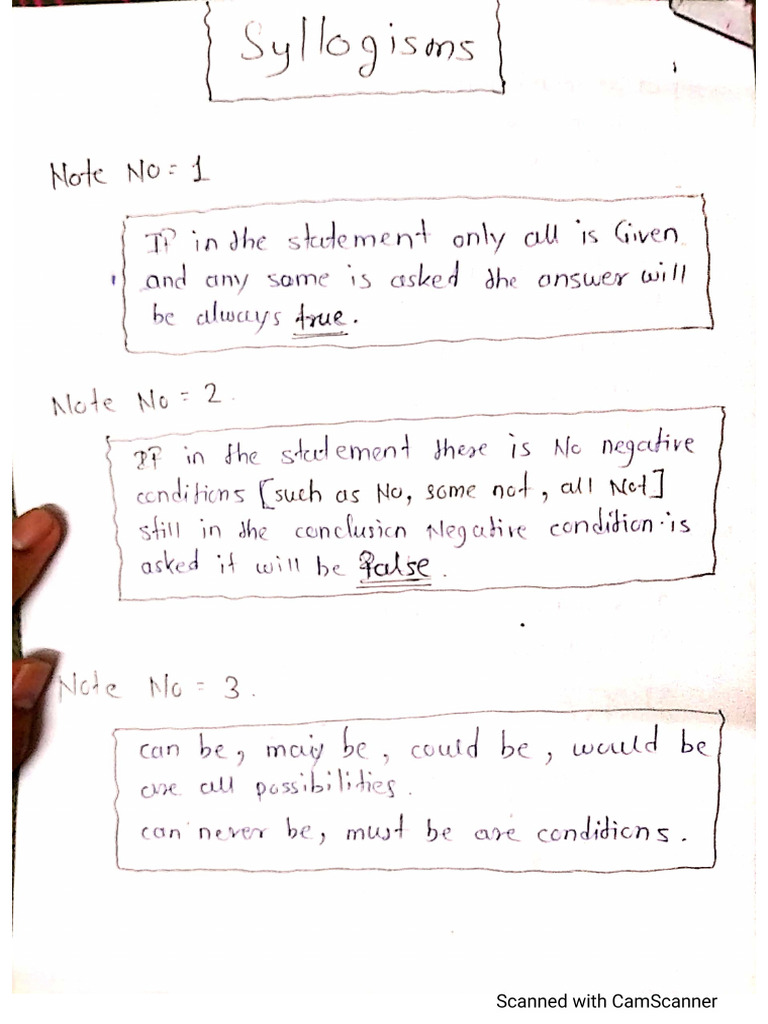 Syllogisms
Note No = 1
If in the statement only all is Given
and any some is asked the answer will
be always true.
Note No = 2.
If in the statement there is No negative
conditions [such as No, some not, all Not]
still in the conclusion Negative condition is
asked it will be false.
Note No = 3.
can be, may be, could be, would be
are all possibilities.
can never be, must be are conditions.
Scanned with CamScanner